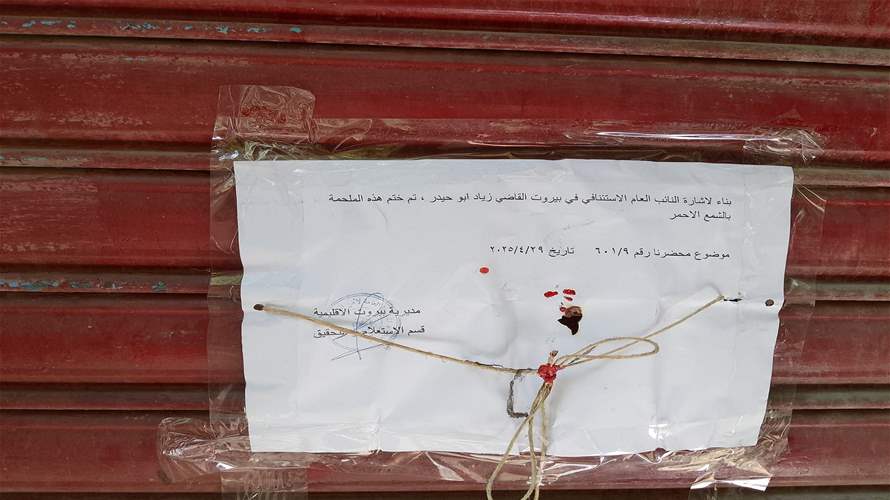 بناء لاشارة النائب العام الاستئنافي في بيروت القاضي زياد ابو حيدر ، تم ختم هذه الملحمة
بالشمع الاحمر
موضوع محضرنا رقم ٦٠١/٩ تاريخ ٢٠٢٥/٤/٢٩
مديرية بيروت الاقليمية
قسم الإستعلام والتحقيق